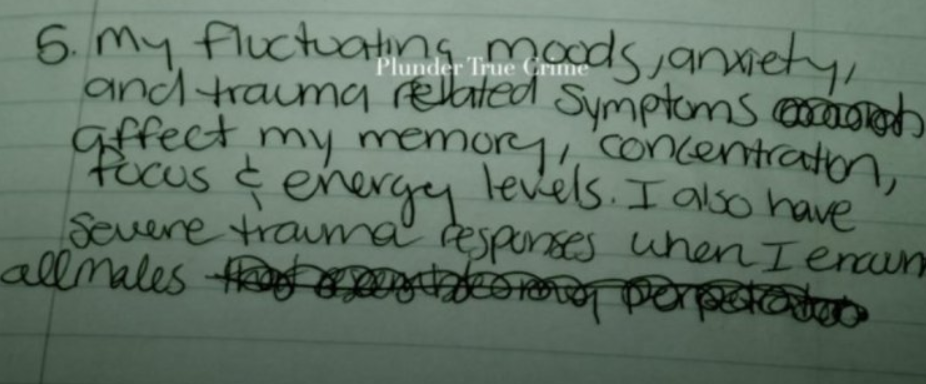 5. My fluctuating moods, anxiety,
Plunder True Crime
and trauma related symptoms
affect my memory, concentration,
focus & energy levels. I also have
severe trauma responses when I
all males